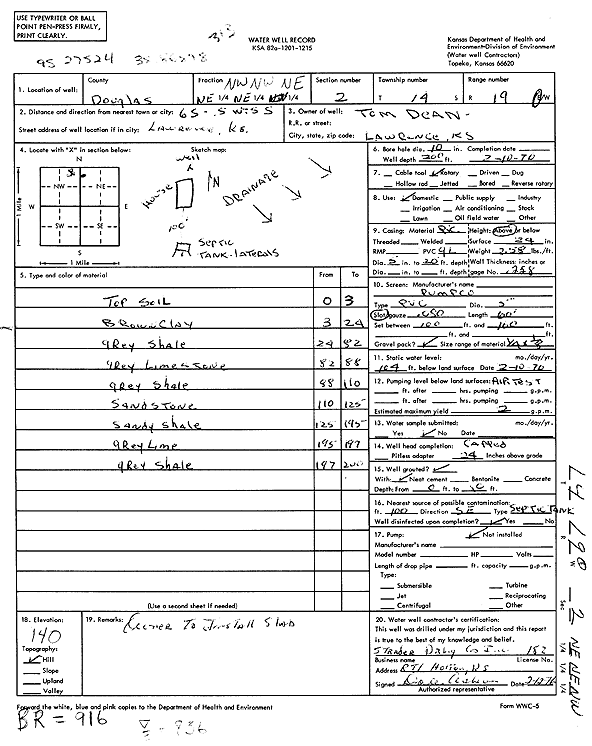 USE TYPEWRITER OR BALL
POINT PEN-PRESS FIRMLY,
PRINT CLEARLY.
WATER WELL RECORD
KSA 82a-1201-1215
Kansas Department of Health and
Environment-Division of Environment
(Water well Contractors)
Topeka, Kansas 66620
95 27524
1. Location of well:
County
Douglas
Fraction NW NW NE
NE 1/4 NE 1/4 1/4
Section number
2
Township number
T 14 S
Range number
R 19 E/W
2. Distance and direction from nearest town or city:
Street address of well location if in city: Lawrence, KS.
3. Owner of well: Tom Dean
R.R. or street:
City, state, zip code: Lawrence, KS
4. Locate with "X" in section below:
Sketch map:
N
NW NE
W E
SW SE
S
1 Mile
1 Mile
well
House
100'
N
DRAINAGE
Septic
Tank-laterals
6. Bore hole dia. 10 in. Completion date
Well depth 200 ft. 2-10-70
7. Cable tool ✓ Rotary Driven Dug
Hollow rod Jetted Bored Reverse rotary
8. Use: ✓ Domestic Public supply Industry
Irrigation Air conditioning Stock
Lawn Oil field water Other
9. Casing: Material PVC Height: Above or below
Threaded Welded Surface 24 in.
RMP PVC Weight 2.58 lbs./ft.
Dia. 5 in. to 20 ft. depth Wall Thickness: inches or
Dia. in. to ft. depth gage No. .258
10. Screen: Manufacturer's name
Pumpco
Type PVC Dia. 5"
Slot/gauze .080 Length 60'
Set between 100 ft. and 160 ft.
ft. and ft.
Gravel pack? ✓ Size range of material
11. Static water level: mo./day/yr.
164 ft. below land surface Date 2-10-70
12. Pumping level below land surfaces: AIR TEST
ft. after hrs. pumping g.p.m.
ft. after hrs. pumping g.p.m.
Estimated maximum yield 2 g.p.m.
13. Water sample submitted: mo./day/yr.
Yes ✓ No Date
14. Well head completion: Capped
Pitless adapter 24 Inches above grade
15. Well grouted? ✓
With: ✓ Neat cement Bentonite Concrete
Depth: From 0 ft. to 10 ft.
16. Nearest source of possible contamination:
ft. 100 Direction SE Type Septic Tank
Well disinfected upon completion? ✓ Yes No
17. Pump: ✓ Not installed
Manufacturer's name
Model number HP Volts
Length of drop pipe ft. capacity g.p.m.
Type:
Submersible Turbine
Jet Reciprocating
Centrifugal Other
5. Type and color of material From To
Top Soil 0 3
Brown Clay 3 24
Grey Shale 24 82
Grey Limestone 82 88
Grey Shale 88 110
Sandstone 110 125
Sandy Shale 125 195
Grey Lime 195 197
Grey Shale 197 200
(Use a second sheet if needed)
18. Elevation:
140
Topography:
✓ Hill
Slope
Upland
Valley
19. Remarks: Owner To Install Slab
20. Water well contractor's certification:
This well was drilled under my jurisdiction and this report
is true to the best of my knowledge and belief.
Strader Drlg Co Inc. 182
Business name License No.
Address RT1 Holton, KS
Signed Date
Authorized representative
Forward the white, blue and pink copies to the Department of Health and Environment
Form WWC-5
BR = 916
T R W Sec 1/4 1/4 1/4
2 NE NE NW